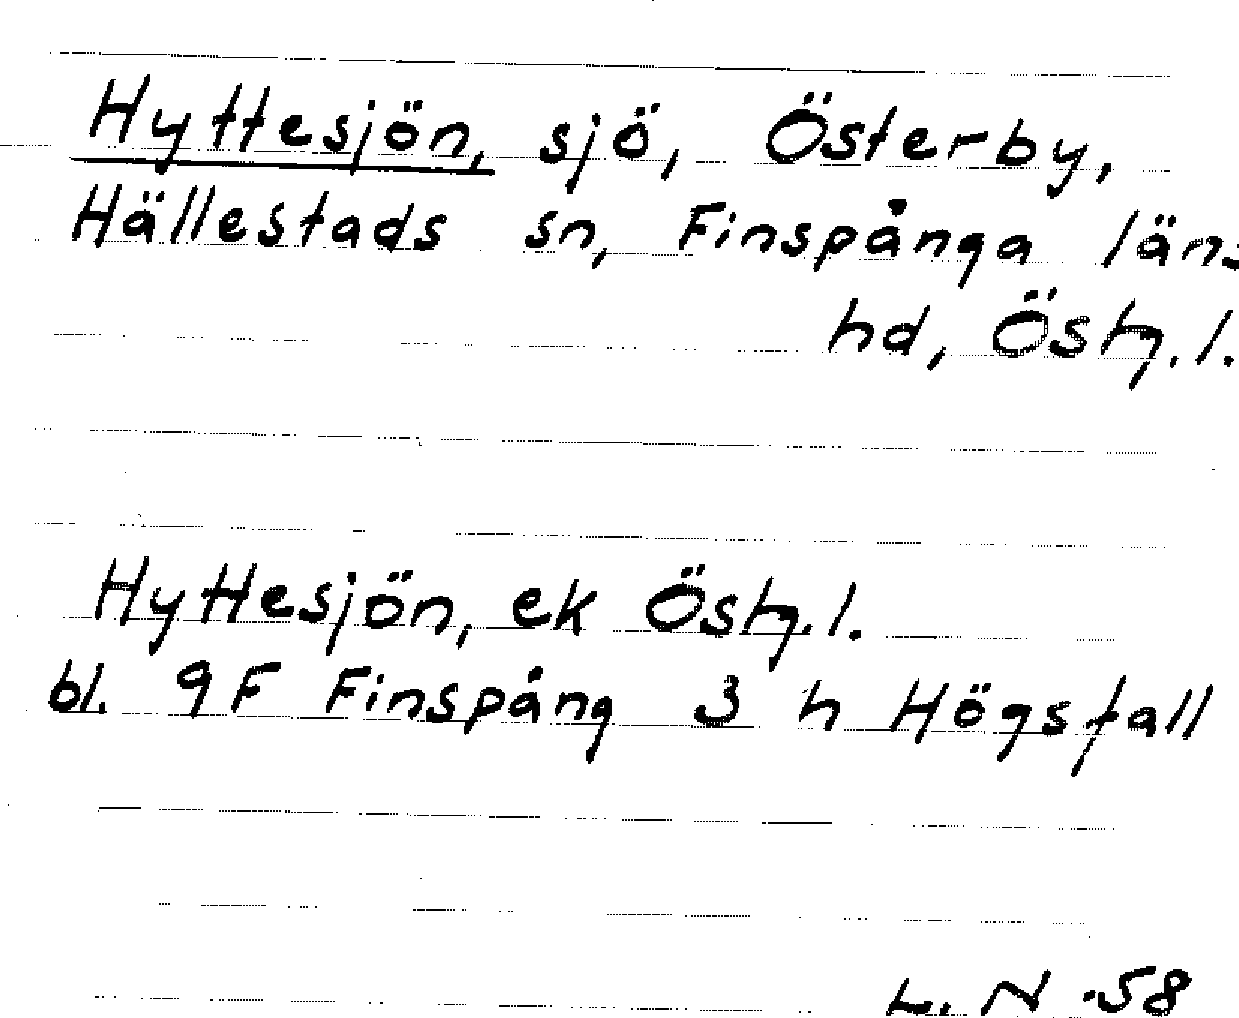 Hyttesjön, sjö, Österby,
Hällestads sn, Finspånga läns
hd, Östg.l.
Hyttesjön, ek Östg.l.
bl. 9F Finspång 3 h Högsfall
L. N -58